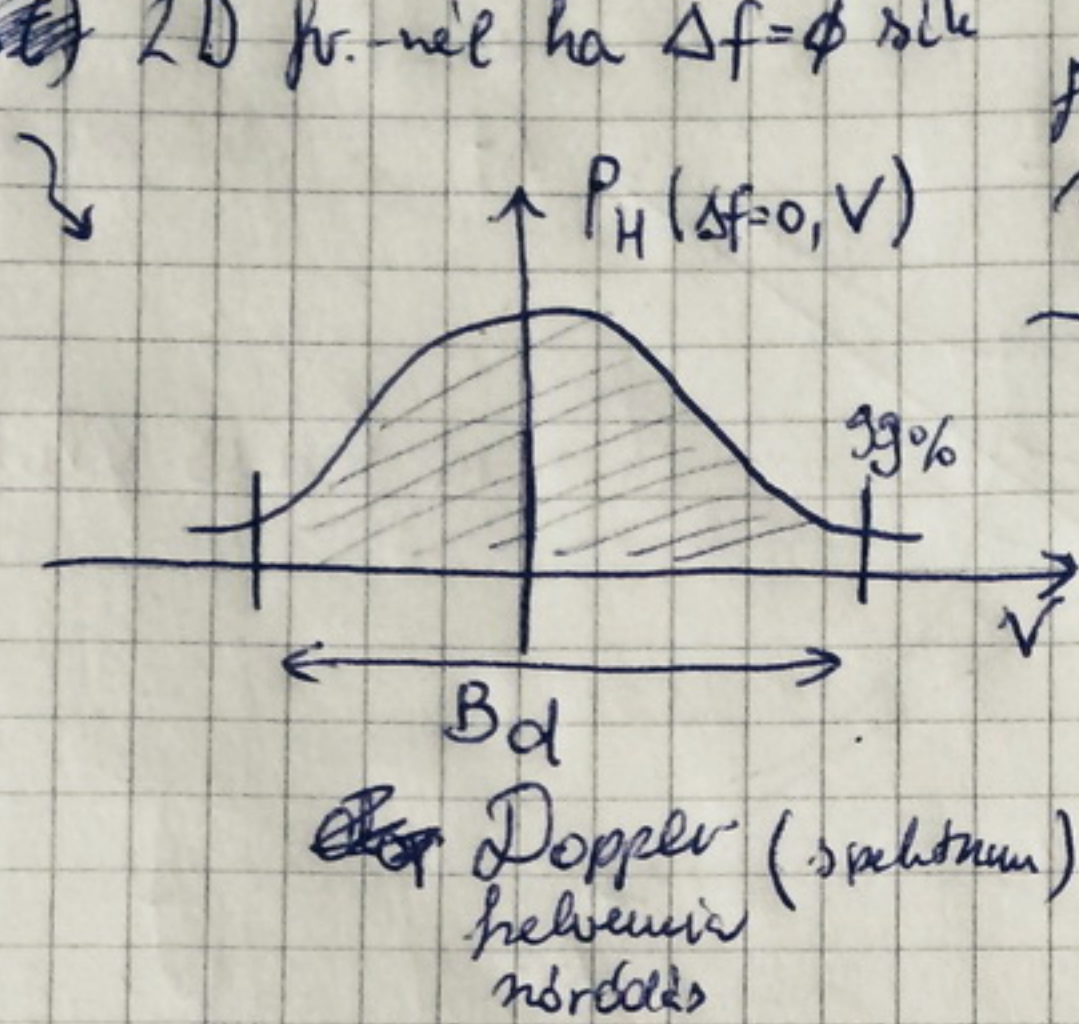 2D fv.-nél ha Δf=∅ sík
P_H (Δf=0, V)
99%
V
B_d
Doppler (spektrum)
frekvencia
szóródás